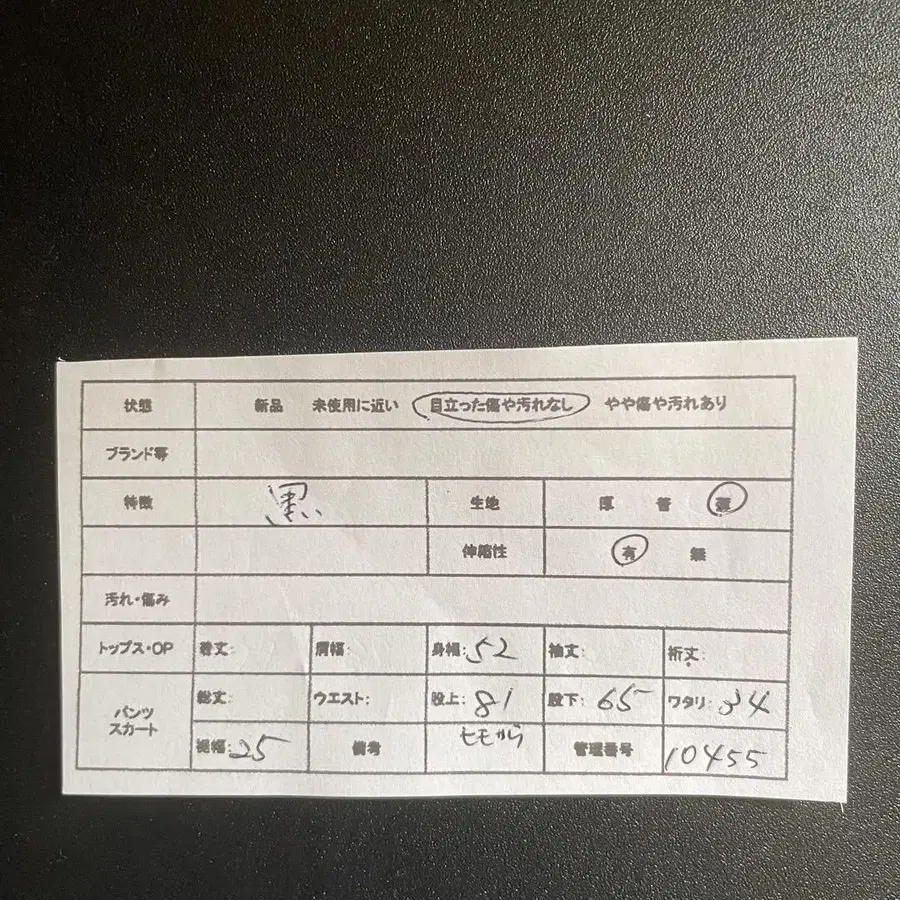 状態 新品 未使用に近い 目立った傷や汚れなし やや傷や汚れあり
ブランド等
特徴 黒 生地 厚 普 薄
伸縮性 有 無
汚れ・傷み
トップス・OP 着丈: 肩幅: 身幅:52 袖丈: 裄丈:
パンツ スカート 総丈: ウエスト: 股上:81 股下:65 ワタリ:34
ヒモから
裾幅:25 備考 管理番号 10455